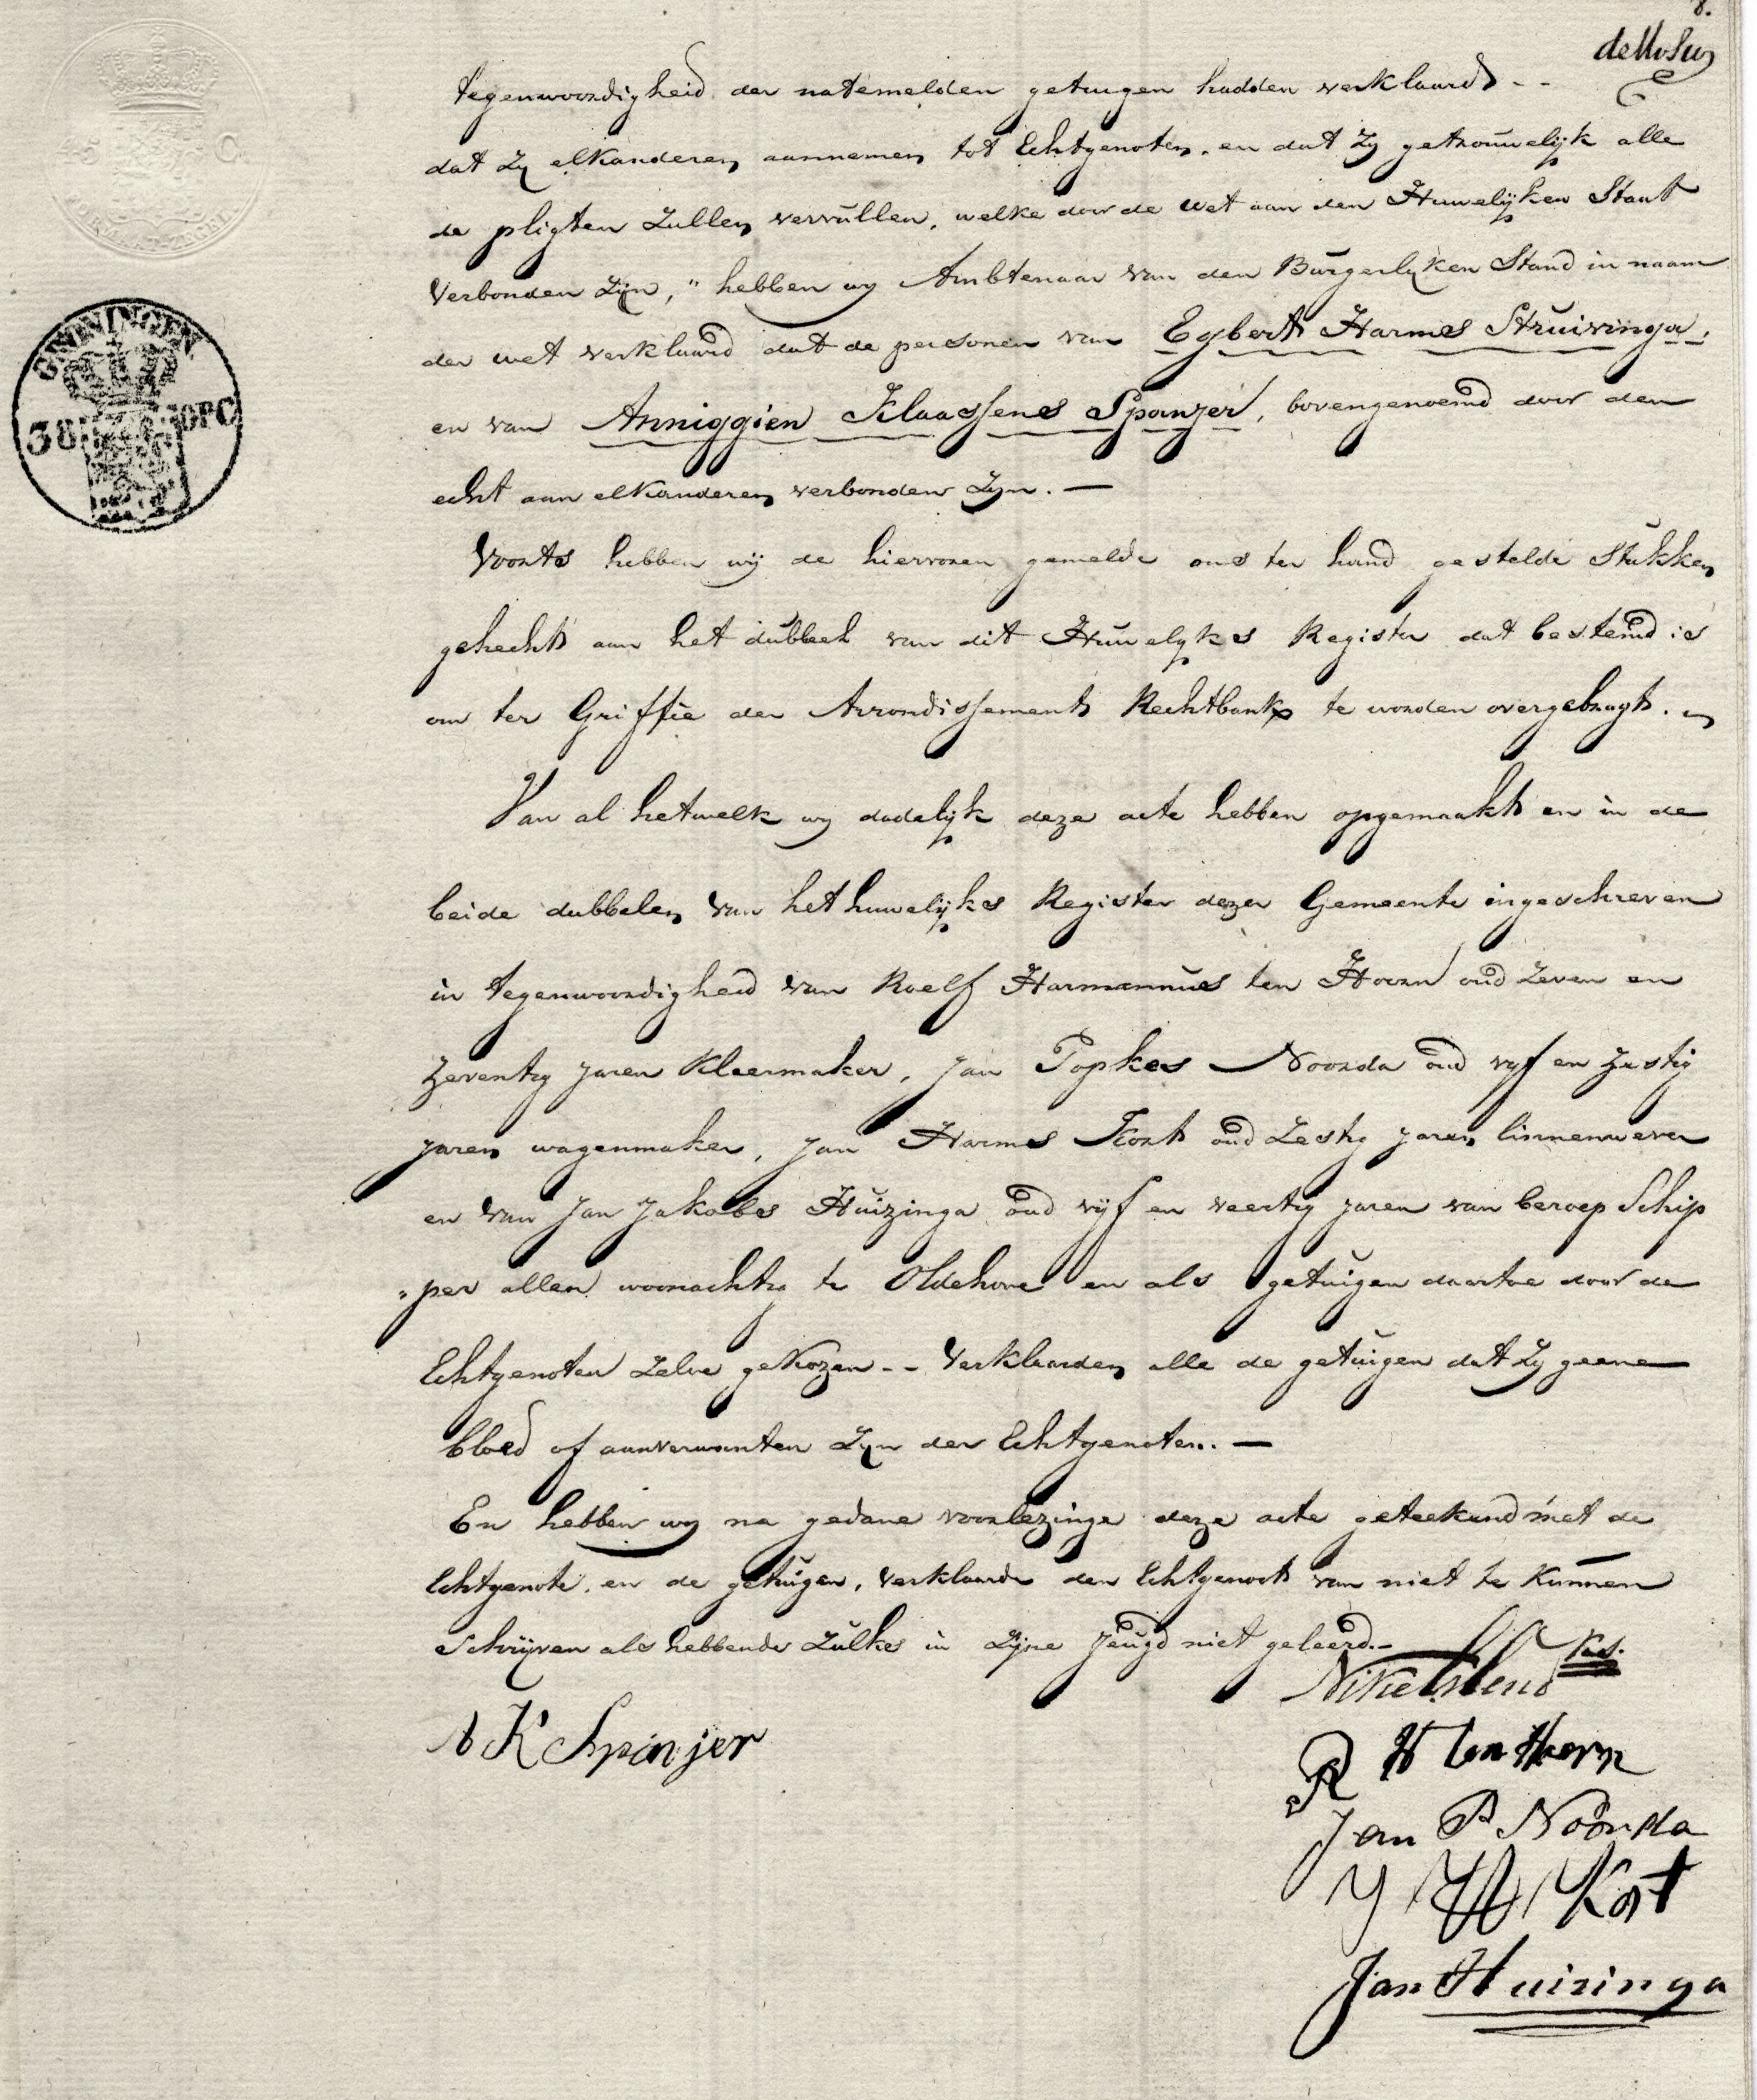 8.
tegenwoordigheid der natemelden getuigen hadden verklaard --
dat zy elkanderen aannemen tot Echtgenoten. en dat zy getrouwelijk alle
de pligten zullen vervullen, welke door de wet aan den Huwelijken Staat
verbonden zijn," hebben wy Ambtenaar van den Burgerlyken Stand in naam
der wet verklaard dat de personen van Egbert Harmes Struivinga,
en van Anniggien Klaassens Spanjer, bovengenoemd door den
echt aan elkanderen verbonden zyn. —
Voorts hebben wij de hiervoren gemelde ons ter hand gestelde Stukken
gehecht aan het dubbeel van dit Huwelyks Register dat bestemd is
om ter Griffie der Arrondissement Rechtbank te worden overgebragt.
Van al hetwelk wy dadelijk deze acte hebben opgemaakt en in de
beide dubbelen van het huwelijks Register dezer Gemeente ingeschreven
in tegenwoordigheid van Roelf Harmannus ten Hoorn oud zeven en
zeventig jaren Kleermaker, Jan Popkes Noorda oud vyf en zestig
jaren wagenmaker, Jan Harmes Kort oud zestig jaren linnenwever
en van Jan Jakobs Huizinga oud vijf en veertig jaren van beroep Schip
"per allen woonachtig te Oldehove en als getuigen daartoe door de
Echtgenoten zelve gekozen -- Verklaarden alle de getuigen dat zy geene
bloed of aanverwanten zyn der Echtgenoten. —
En hebben wy na gedane voorlezinge deze acte geteekend met de
Echtgenote. en de getuigen, verklaarde den Echtgenoot van niet te kunnen
Schrijven als hebbende zulks in zijne jeugd niet geleerd.-
A K Spanjer
R H ten Hoorn
Jan P Noorda
J H Kort
Jan Huizinga
GRONINGEN
38 OPC